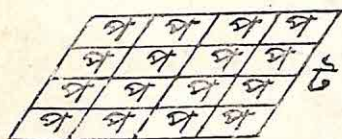 প প প প
প প প প
প প প প
প প প প